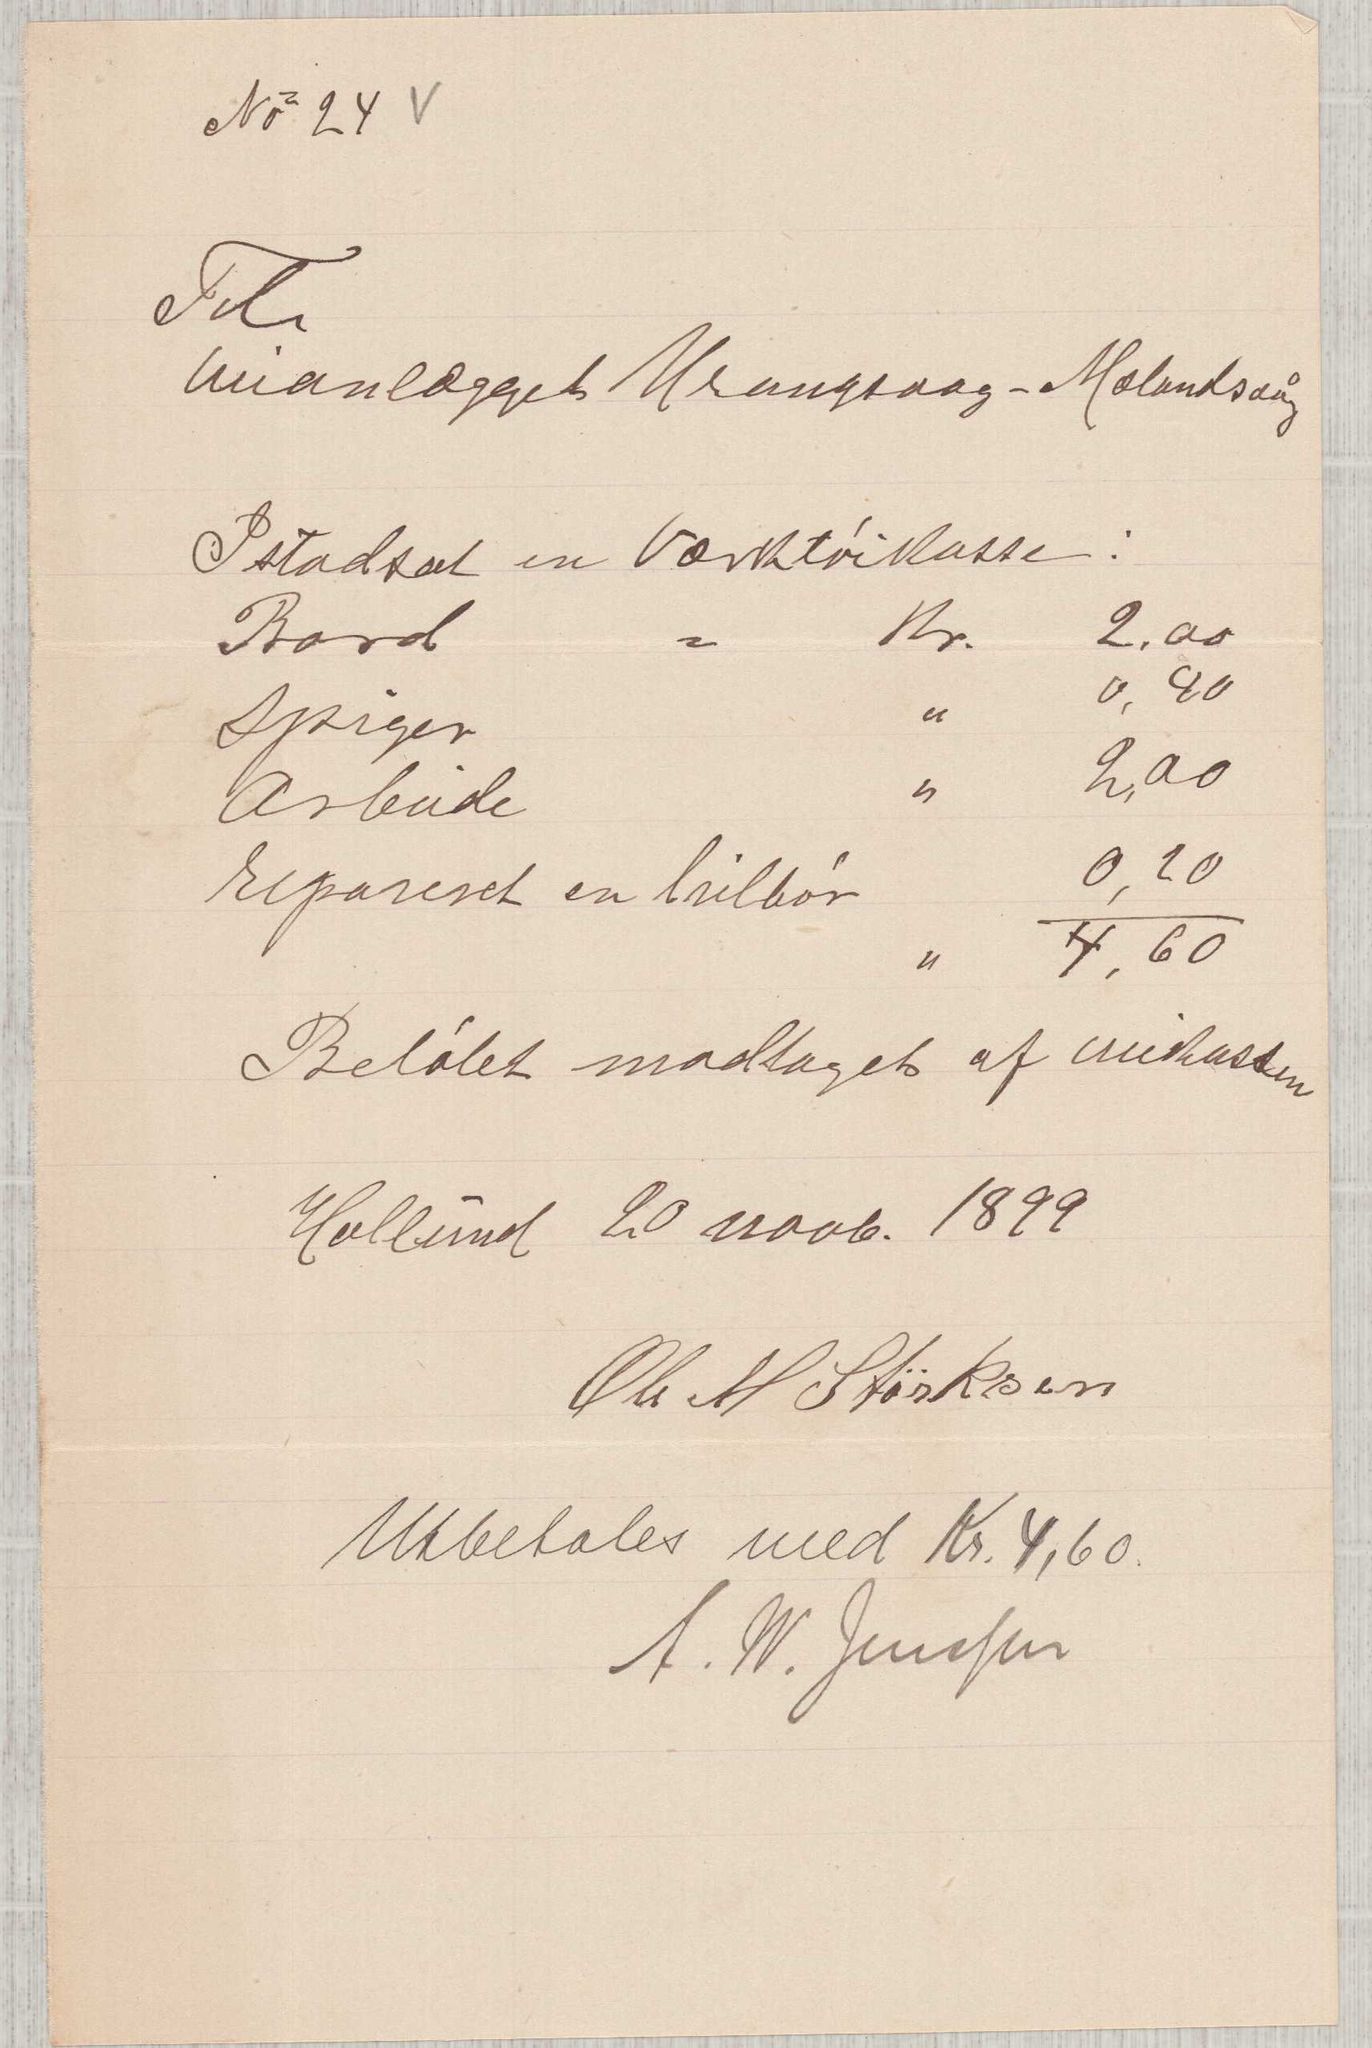 No 24 V
Til
veianlægget Urangsvaag - Mælandsvåg
Istadsat en Værktöikasse :
Bord " Kr. 2.00
Spiger " 0,40
Arbeide " 2,00
repareret en trilbör 0,20
" 4,60
Belöbet modtaget af veikassen
Hollund 20 novb. 1899
Ole M Störksen
Utbetales med Kr. 4,60.
A. W. Jenssen